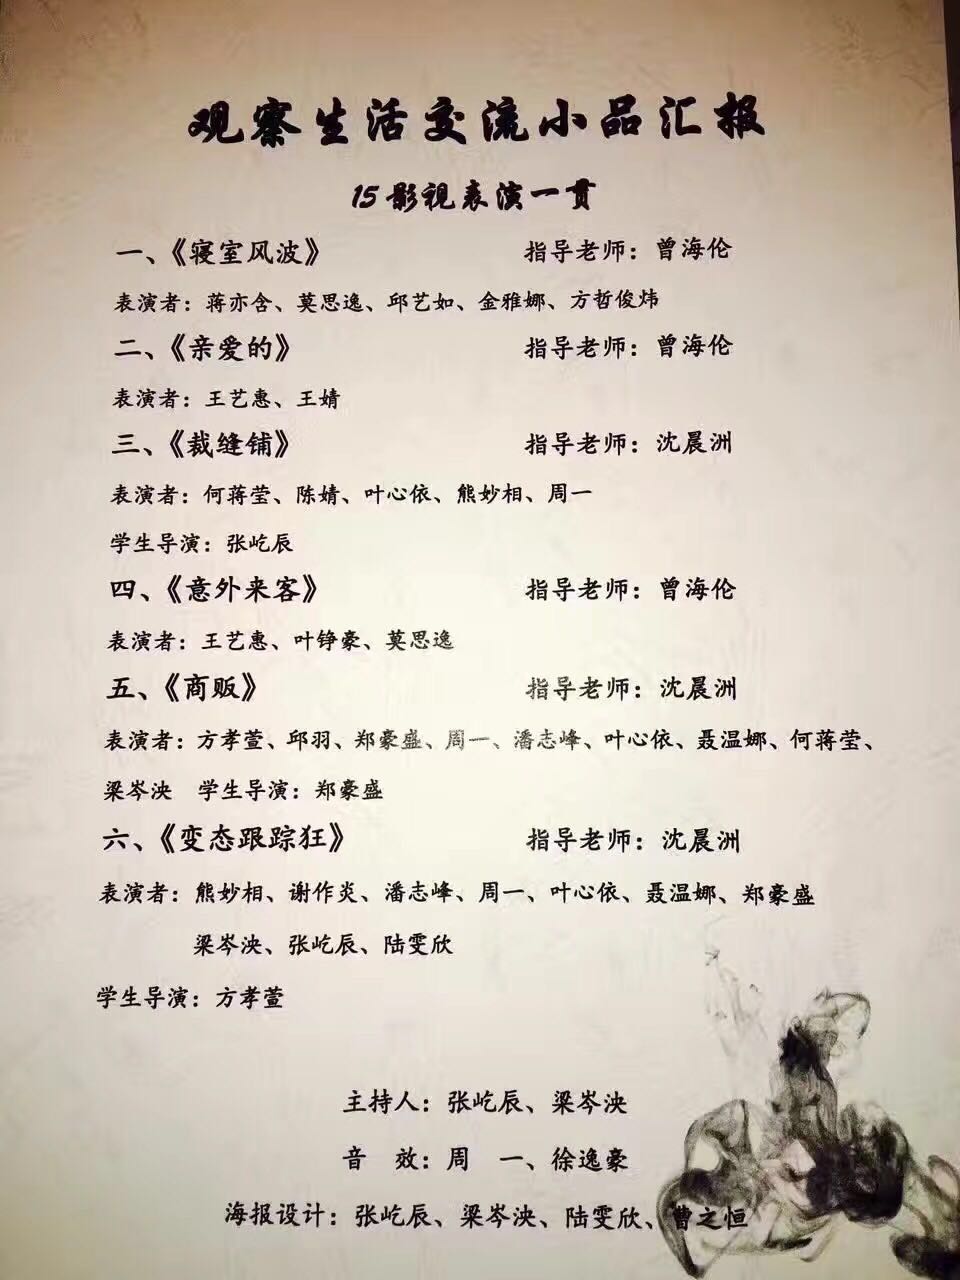 观察生活交流小品汇报
15影视表演一贯
一、《寝室风波》 指导老师：曾海伦
表演者：蒋亦含、莫思逸、邱艺如、金雅娜、方哲俊炜
二、《亲爱的》 指导老师：曾海伦
表演者：王艺惠、王婧
三、《裁缝铺》 指导老师：沈晨洲
表演者：何蒋莹、陈婧、叶心依、熊妙相、周一
学生导演：张屹辰
四、《意外来客》 指导老师：曾海伦
表演者：王艺惠、叶铮豪、莫思逸
五、《商贩》 指导老师：沈晨洲
表演者：方孝萱、邱羽、郑豪盛、周一、潘志峰、叶心依、聂温娜、何蒋莹、
梁岑泱 学生导演：郑豪盛
六、《变态跟踪狂》 指导老师：沈晨洲
表演者：熊妙相、谢作炎、潘志峰、周一、叶心依、聂温娜、郑豪盛
梁岑泱、张屹辰、陆雯欣
学生导演：方孝萱
主持人：张屹辰、梁岑泱
音 效：周 一、徐逸豪
海报设计：张屹辰、梁岑泱、陆雯欣、曹之恒